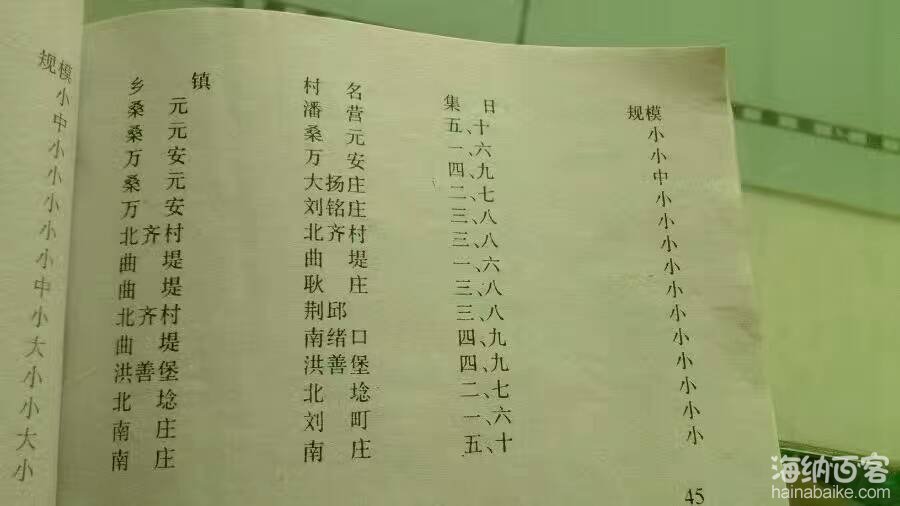 规模
小
中
小
小
小
小
小
中
小
大
小
小
大
小
乡镇 村名 集日 规模
桑元 潘营 五、十 小
桑元 桑元 一、六 小
万安 万安 四、九 中
桑元 大扬庄 二、七 小
万安 刘铭庄 三、八 小
北齐村 北齐村 三、八 小
曲堤 曲堤 一、六 小
曲堤 耿庄 三、八 小
北齐村 荆邱 三、八 小
曲堤 南绪口 四、九 小
洪善堡 洪善堡 四、九 小
北埝 北埝 二、七 小
南庄 刘町 一、六 小
南庄 南庄 五、十 小
45
海纳百客
hainabaike.com